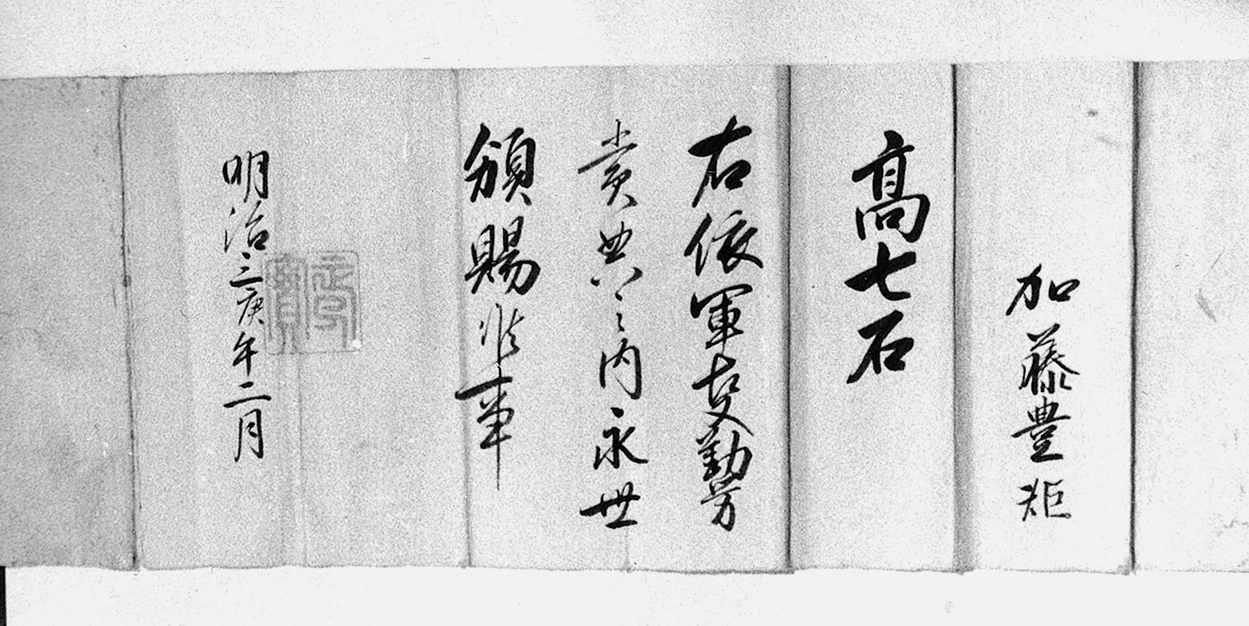 加藤豊矩
髙七石
右依軍叓勤労
賞典之内永世
頒賜候事
明治三庚午二月